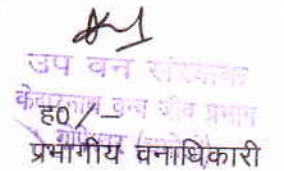 उप वन संरक्षक
केदारनाथ वन्य जीव प्रभाग
ह0/-
गोपेश्वर (चमोली)
प्रभागीय वनाधिकारी